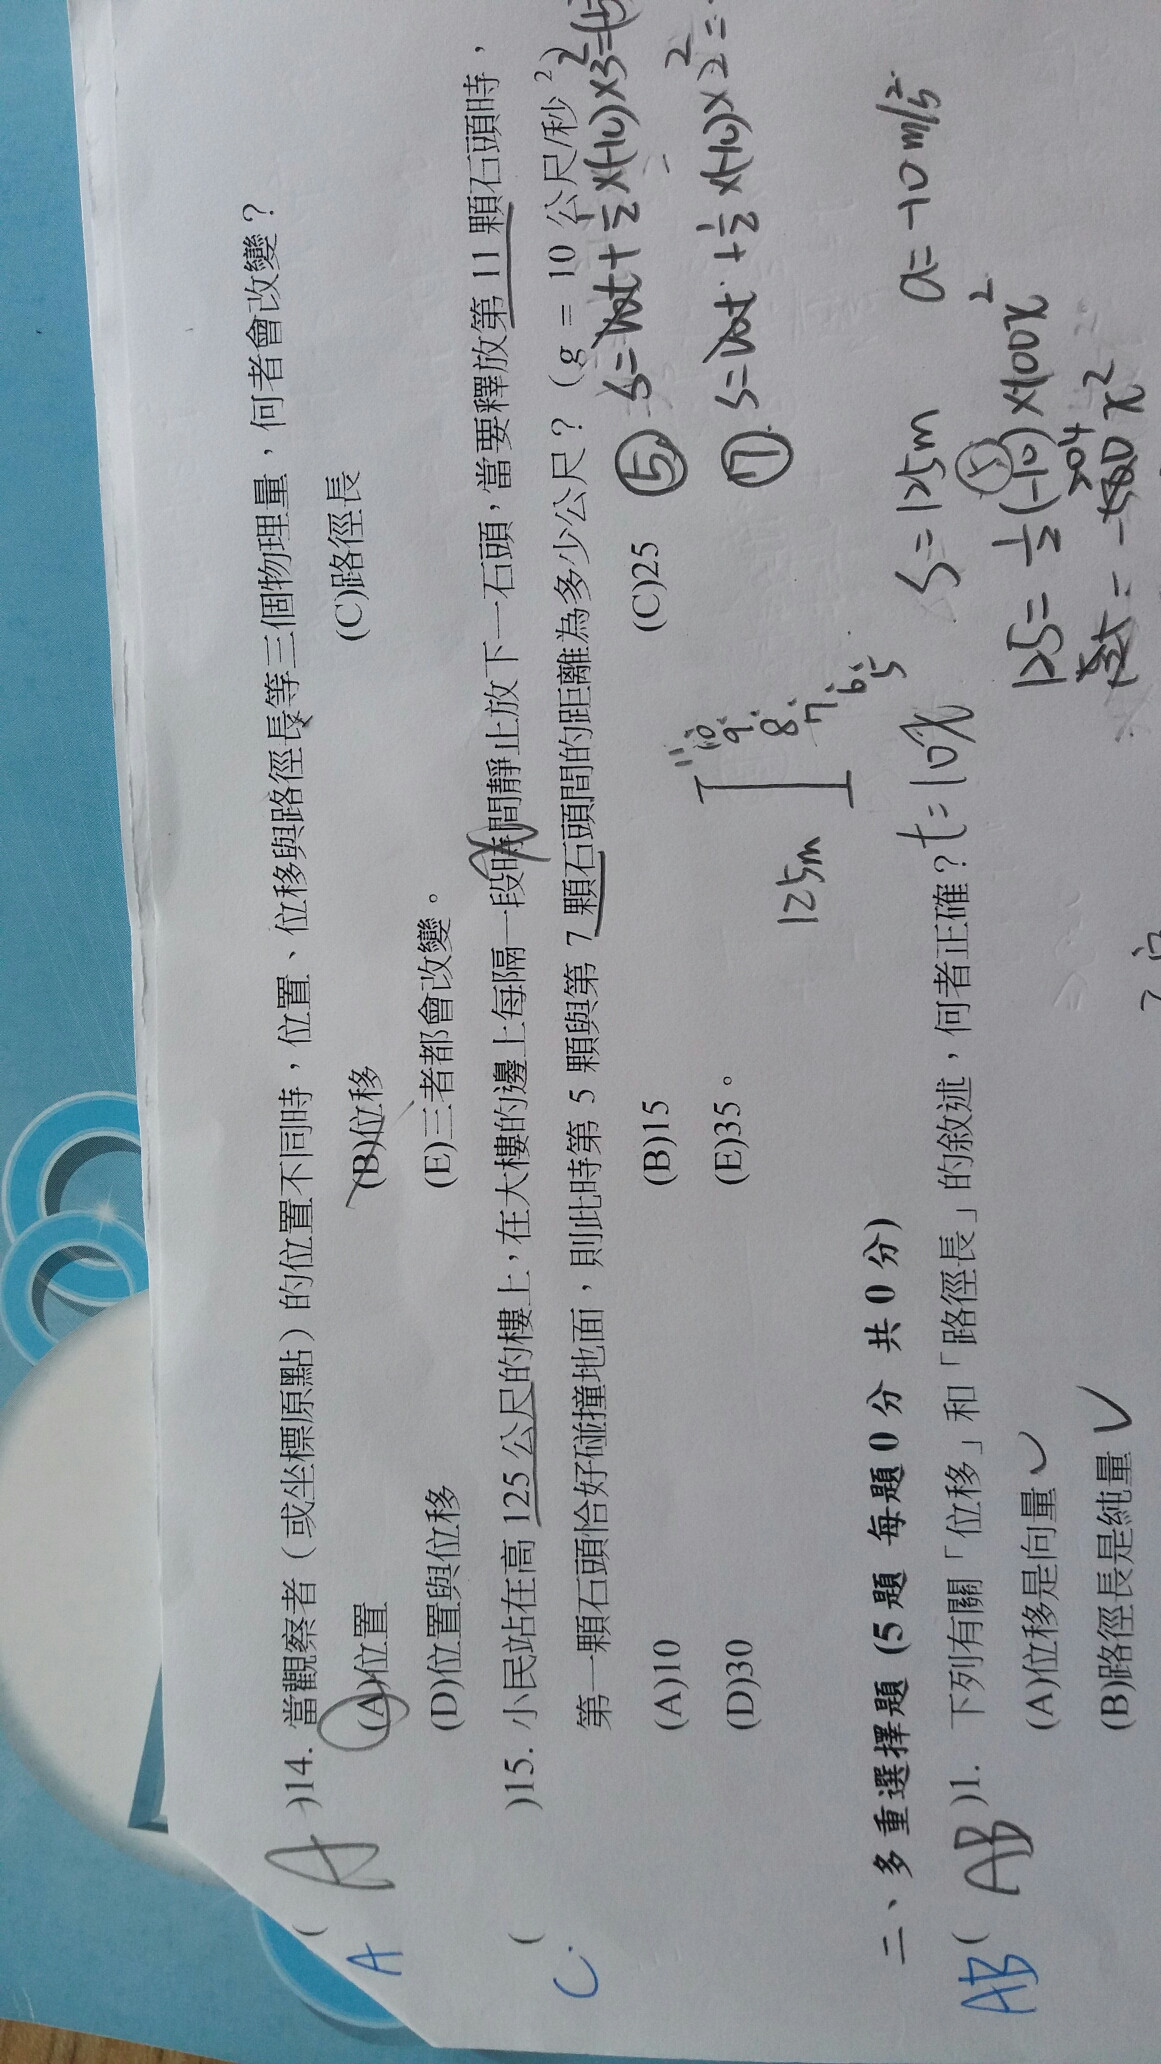 (A)14. 當觀察者（或坐標原點）的位置不同時，位置、位移與路徑長等三個物理量，何者會改變？
A
(A)位置 (B)位移 (C)路徑長
(D)位置與位移 (E)三者都會改變。
( )15. 小民站在高 125 公尺的樓上，在大樓的邊上每隔一段時間靜止放下一石頭，當要釋放第 11 顆石頭時，
C
第一顆石頭恰好碰撞地面，則此時第 5 顆與第 7 顆石頭間的距離為多少公尺？（g = 10 公尺/秒²）
(A)10 (B)15 (C)25
(D)30 (E)35。
⑤ S=V0t+½×(-10)×3²=
⑦ S=V0t+½×(-10)×2²=
125m
11 10 9 8 7 6 5
二、多重選擇題 (5 題 每題 0 分 共 0 分)
AB
(AB)1. 下列有關「位移」和「路徑長」的敘述，何者正確？
t=10x S=125m a=-10m/s²
(A)位移是向量✓
125=½(-10)×100x²
(B)路徑長是純量✓